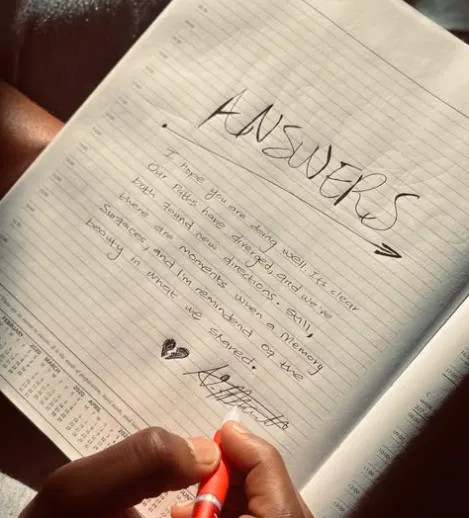 ANSWERS
I hope you are doing well. Its clear
Our Paths have diverged, and we've
both found new directions. Still,
there are moments when a memory
Surfaces, and I'm remindend of the
beauty in what we shared.
FEBRUARY
2022 MARCH
2022 APRIL